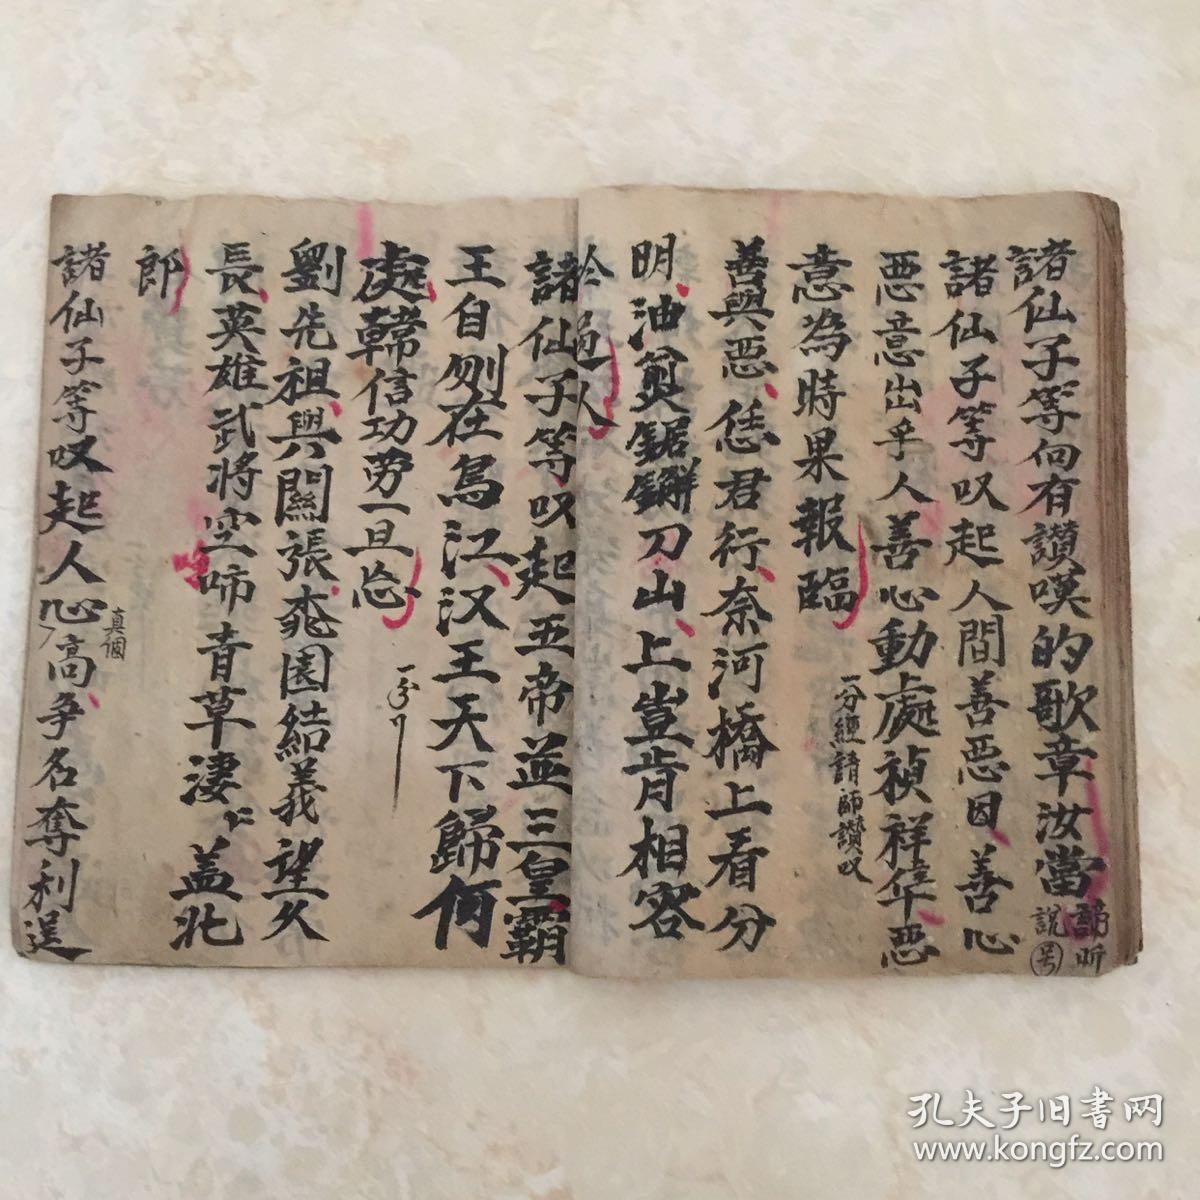 諸仙子等向有讃嘆的歌章汝當諦听
說号
諸仙子等叹起人間善惡因善心
惡意出乎人善心動處祯祥年惡
意為時果報臨
一分經請師讃叹
善與惡恁君行奈河橋上看分
明油煎鋸觧刀山上豈肯相容
於過人
諸仙子等叹起五帝並三皇霸
王自刎在烏江汉王天下歸何
處韓信功劳一旦忘
劉先祖與關張桃園結義望久
長英雄武将空啼青草凄〻盖北
郎
諸仙子等叹起人心高争名奪利逞
真個
孔夫子旧书网
www.kongfz.com